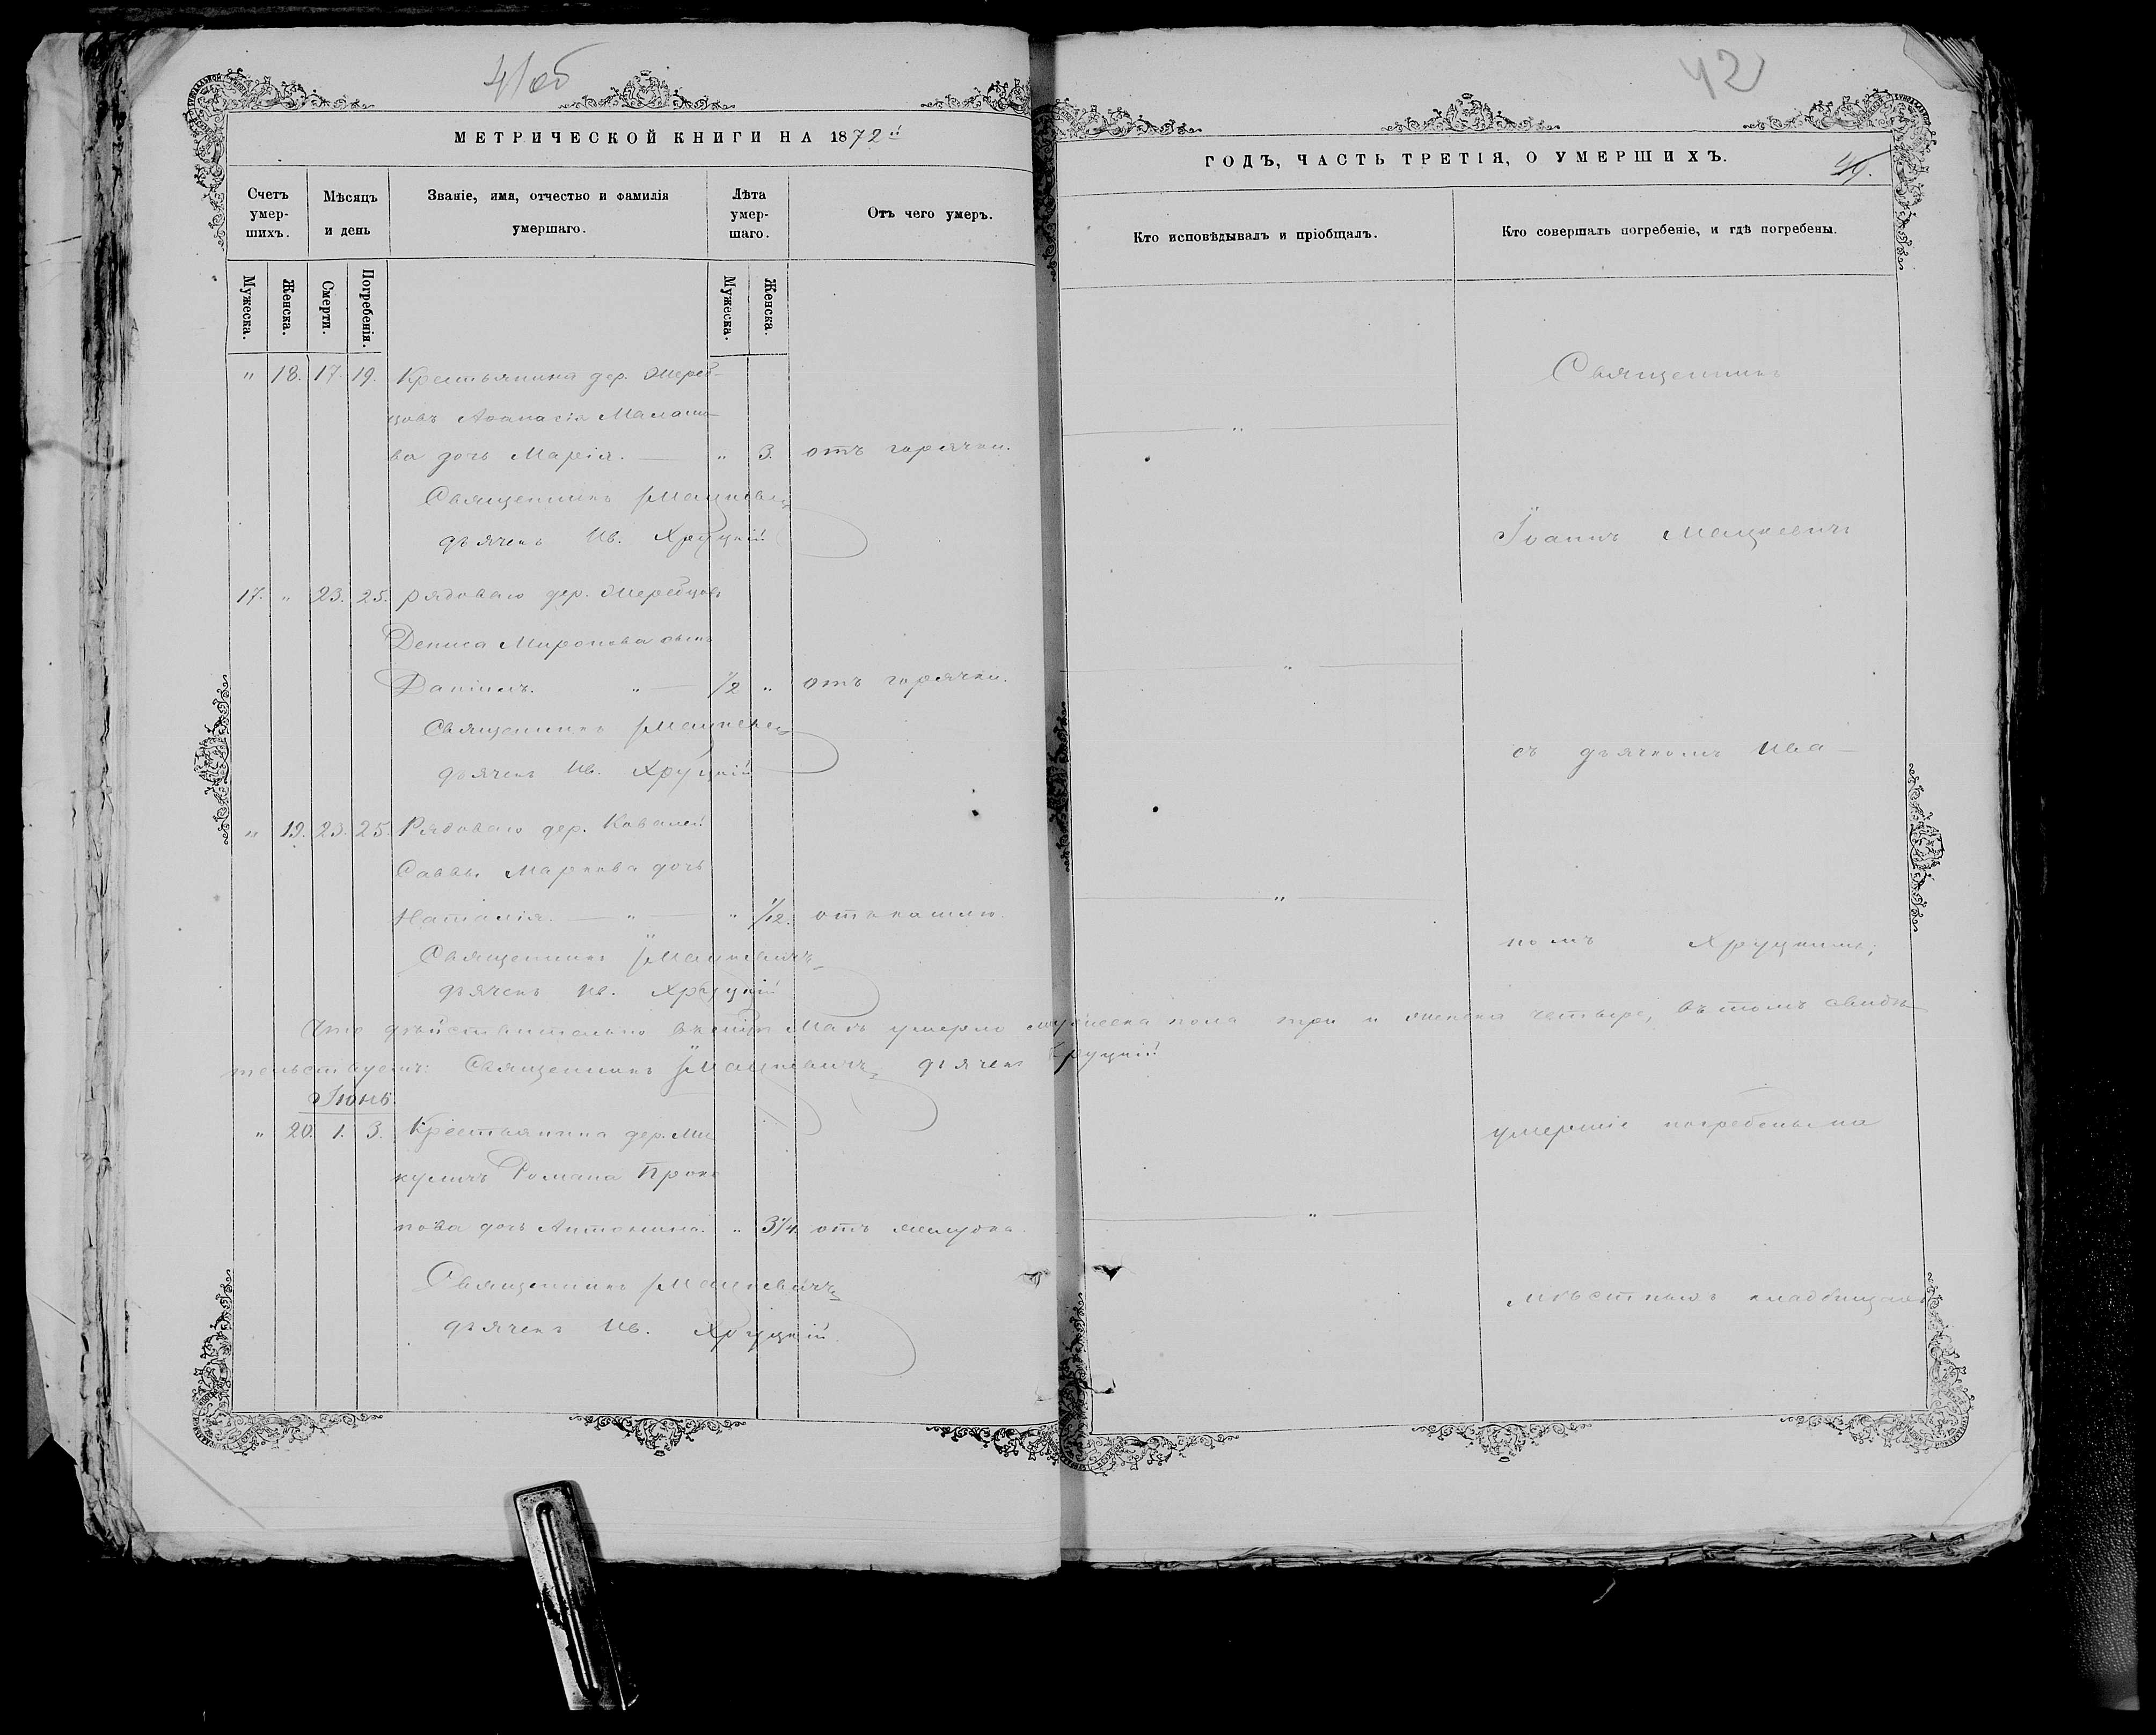 41об
МЕТРИЧЕСКОЙ КНИГИ НА 1872й
Счетъ умер-шихъ.
Мѣсяцъ и день
Званіе, имя, отчество и фамилія умершаго.
Лѣта умер-шаго.
Отъ чего умеръ.
Мужеска.
Женска.
Смерти.
Погребенія.
Мужеска.
Женска.
" 18. 17. 19. Крестьянина дер. Жереб-
цовъ Аѳанасія Малаше-
ва дочь Марія. — " 3. отъ горячки.
Священникъ Мацкевичъ
дьячекъ Ив. Хруцкій
17. " 23. 25. рядоваго дер. Жеребцовъ
Дениса Миронова сынъ
Даніилъ. " — 1/2 " отъ горячки.
Священникъ Мацкевичъ
дьячекъ Ив. Хруцкій
" 19. 23. 25. Рядоваго дер. Ковалей
Саввы Маркова дочь
Наталія. — " — " 1/12. отъ кашлю.
Священникъ Мацкевичъ
дьячекъ Ив. Хруцкій
Что дѣйствительно въ Маѣ умерло мужеска пола три и женска четыре, въ томъ свидѣ-
тельствуемъ: Священникъ Мацкевичъ дьячекъ Хруцкій
Іюнь.
" 20. 1. 3. Крестьянина дер. Ми
куличъ Романа Проко
пова дочь Антонина. " 3 1/4. отъ желудка.
Священникъ Мацкевичъ
дьячекъ Ив. Хруцкій
42
ГОДЪ, ЧАСТЬ ТРЕТІЯ, О УМЕРШИХЪ.
Кто исповѣдывалъ и пріобщалъ.
Кто совершалъ погребеніе, и гдѣ погребены.
Священникъ
— " —
Іоаннъ Мацкевичъ
— " —
съ дьячкомъ Ива-
— " —
номъ Хруцкимъ;
умершіе погребены на
— " —
мѣстныхъ кладбищахъ